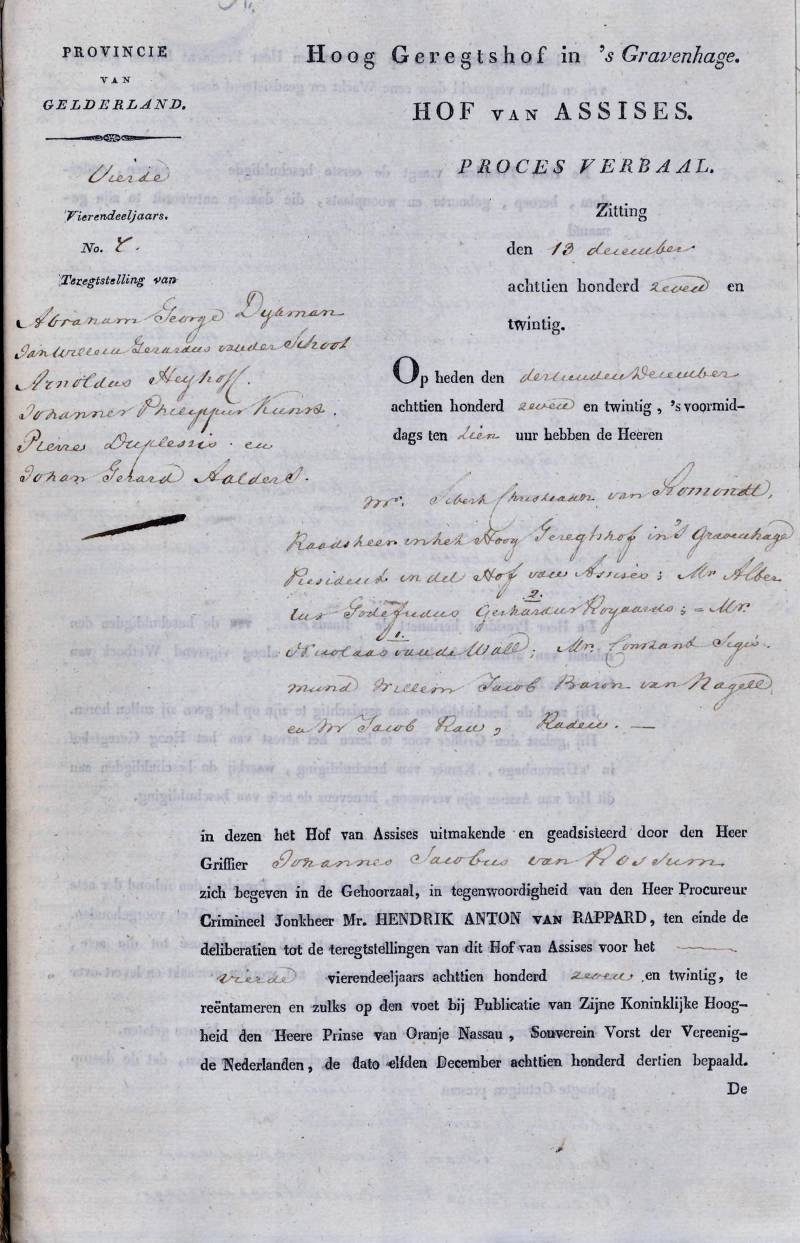 PROVINCIE
VAN
GELDERLAND.
Vierde
Vierendeeljaars.
No. 7.
Teregtstelling van
Abraham George Dykman
Jan Willem Gerardus van der Schoot
Arnoldus Heyhoff.
Johannes Philippus Kunst.
Pierre Duplessis en
Johan Gerard Aalders.
Hoog Geregtshof in 's Gravenhage.
HOF VAN ASSISES.
PROCES VERBAAL.
Zitting
den 13 december
achttien honderd zeven en
twintig.
Op heden den dertienden December
achttien honderd zeven en twintig, 's voormid-
dags ten tien uur hebben de Heeren
Mr. Sibert Christiaan van Romondt,
Raadsheer in het Hoog Geregtshof in 's Gravenhage
President in dit Hof van Assises; Mr Alber
tus Godefridus Gerhardus Royaards; = Mr.
2.
1.
Nicolaas van de Wall; Mr. Constant Segis
mund Willem Jacob Baron van Nagell
en Mr Jacob Rau, Raden. —
in dezen het Hof van Assises uitmakende en geadsisteerd door den Heer
Griffier Johannes Jacobus van Rossum
zich begeven in de Gehoorzaal, in tegenwoordigheid van den Heer Procureur
Crimineel Jonkheer Mr. HENDRIK ANTON VAN RAPPARD, ten einde de
deliberatien tot de teregtstellingen van dit Hof van Assises voor het
vierde vierendeeljaars achttien honderd zeven en twintig, te
reëntameren en zulks op den voet bij Publicatie van Zijne Koninklijke Hoog-
heid den Heere Prinse van Oranje Nassau, Souverein Vorst der Vereenig-
de Nederlanden, de dato elfden December achttien honderd dertien bepaald.
De